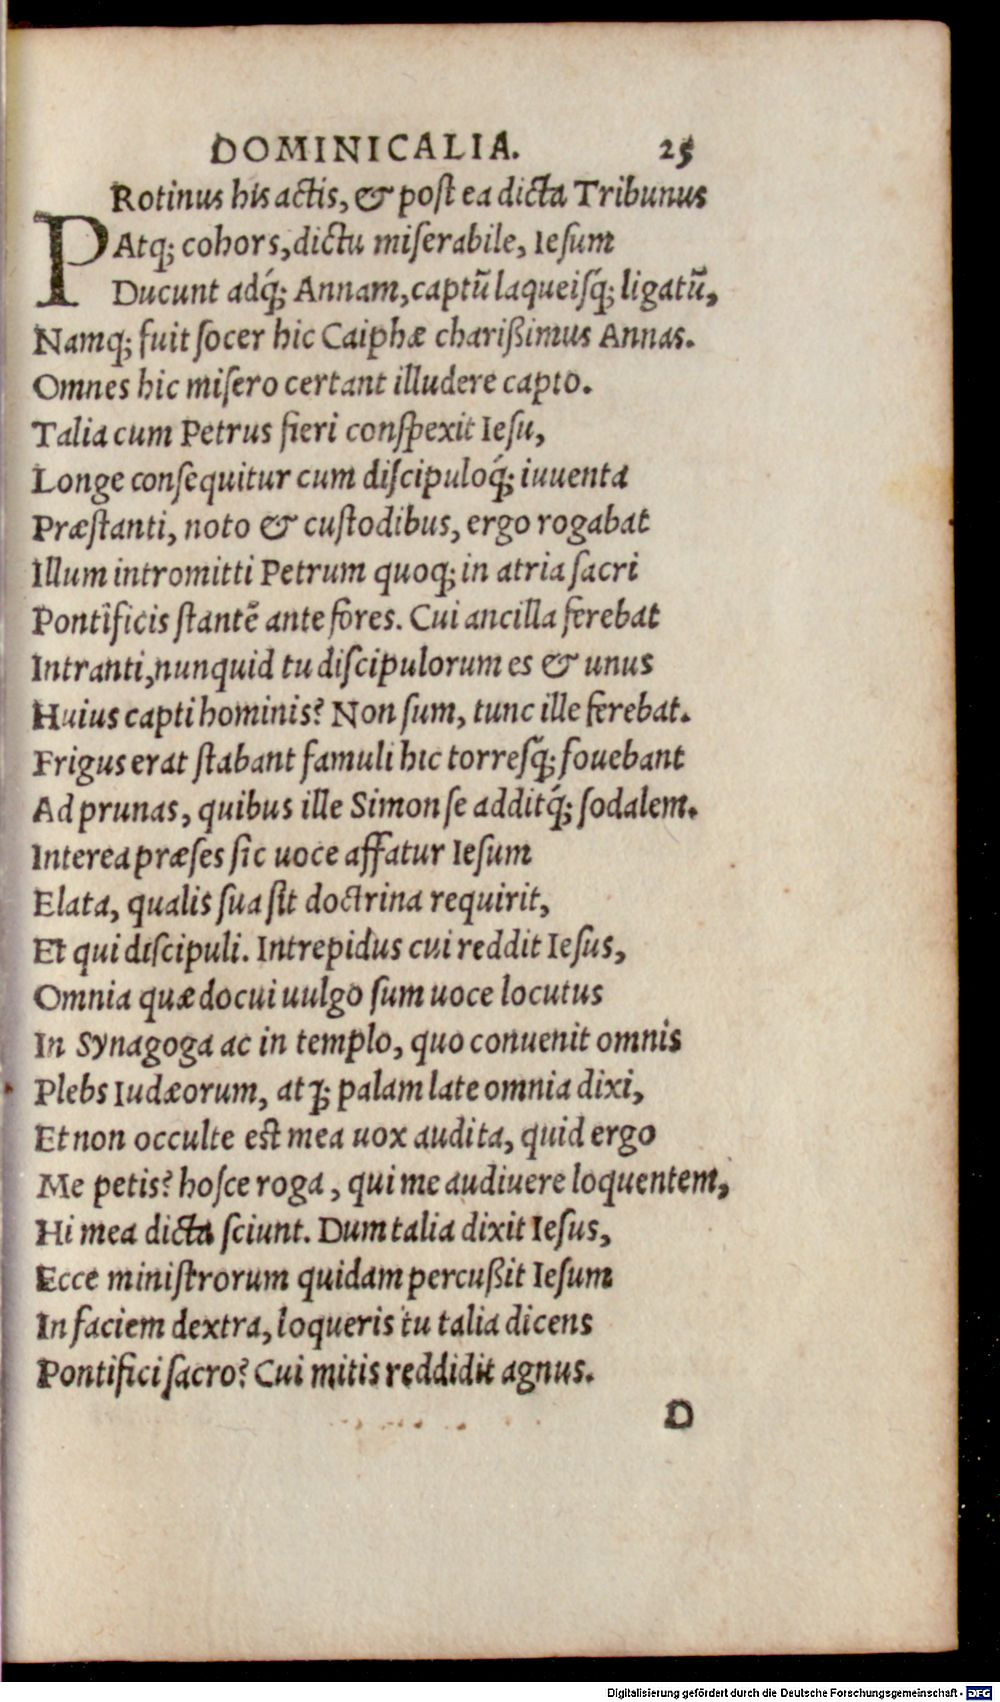 DOMINICALIA. 25
PRotinus his actis, & post ea dicta Tribunus
Atq; cohors, dictu miserabile, Iesum
Ducunt adq́; Annam, captũ laqueisq́; ligatũ,
Namq; fuit socer hic Caiphæ charißimus Annas.
Omnes hic misero certant illudere capto.
Talia cum Petrus fieri conspexit Iesu,
Longe consequitur cum discipuloq́; iuuenta
Præstanti, noto & custodibus, ergo rogabat
Illum intromitti Petrum quoq; in atria sacri
Pontificis stantẽ ante fores. Cui ancilla ferebat
Intranti, nunquid tu discipulorum es & unus
Huius capti hominis? Non sum, tunc ille ferebat.
Frigus erat stabant famuli hic torresq́; fouebant
Ad prunas, quibus ille Simon se additq́; sodalem.
Interea præses sic uoce affatur Iesum
Elata, qualis sua sit doctrina requirit,
Et qui discipuli. Intrepidus cui reddit Iesus,
Omnia quæ docui uulgo sum uoce locutus
In Synagoga ac in templo, quo conuenit omnis
Plebs Iudæorum, atq; palam late omnia dixi,
Et non occulte est mea uox audita, quid ergo
Me petis? hosce roga, qui me audiuere loquentem,
Hi mea dicta sciunt. Dum talia dixit Iesus,
Ecce ministrorum quidam percußit Iesum
In faciem dextra, loqueris tu talia dicens
Pontifici sacro? Cui mitis reddidit agnus.
D
Digitalisierung gefördert durch die Deutsche Forschungsgemeinschaft - DFG